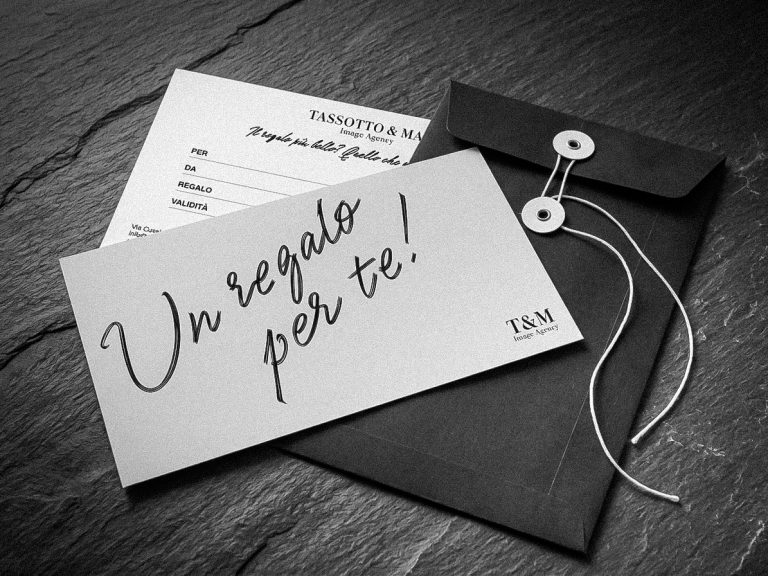 TASSOTTO & MA
Image Agency
Il regalo più bello? Quello che
PER
DA
REGALO
VALIDITÀ
Via
Un regalo
per te!
T&M
Image Agency